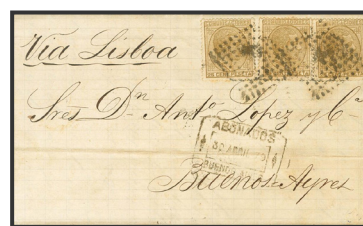 Vía Lisboa
Sres Dn Anto Lopez y Ca
ABONADOS
BUENOS
Buenos-Ayres